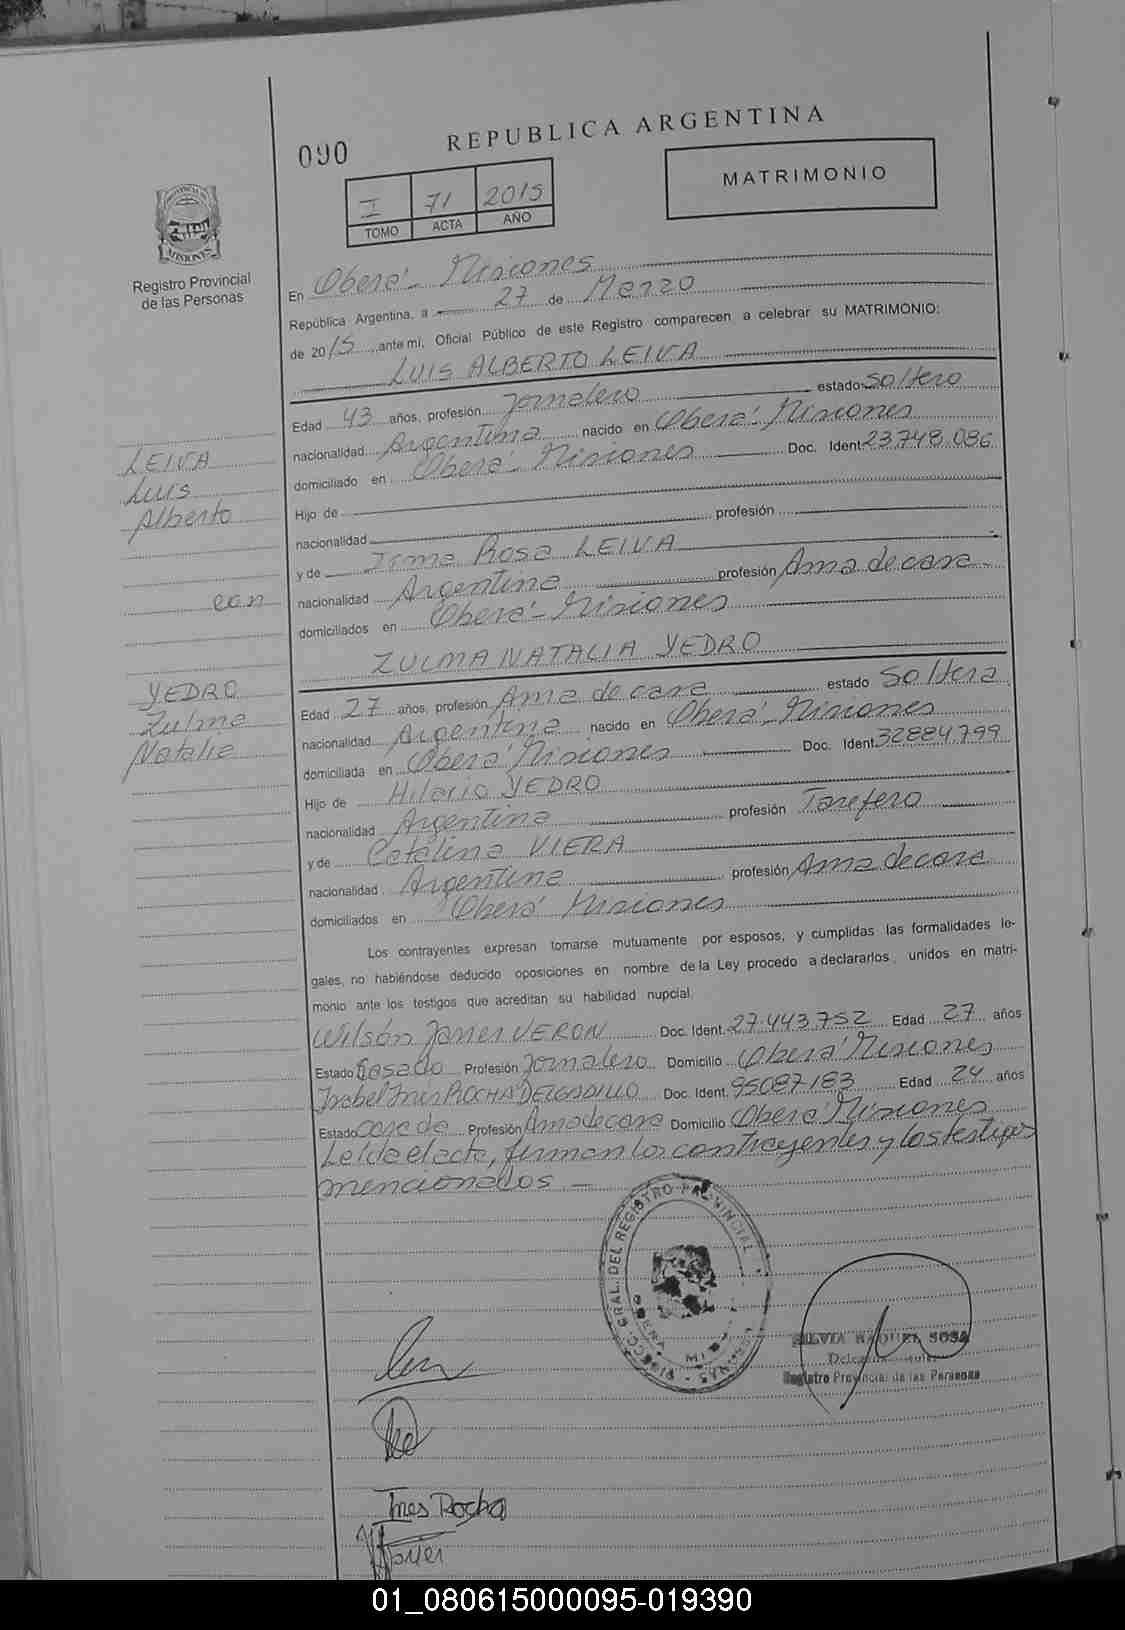 090
REPUBLICA ARGENTINA
MATRIMONIO
I 71 2015
TOMO ACTA AÑO
PROVINCIA DE
MISIONES
Registro Provincial
de las Personas
En Oberá - Misiones
República Argentina, a 27 de Marzo
de 2015, ante mí, Oficial Público de este Registro comparecen a celebrar su MATRIMONIO:
LUIS ALBERTO LEIVA
Edad 43 años, profesión Jornalero estado Soltero
nacionalidad Argentina nacido en Oberá - Misiones
domiciliado en Oberá - Misiones Doc. Ident. 23.748.086
Hijo de
nacionalidad profesión
y de Irma Rosa LEIVA
nacionalidad Argentina profesión Ama de casa
domiciliados en Oberá - Misiones
LEIVA
Luis
Alberto
con
YEDRO
Zulma
Natalia
ZULMA NATALIA YEDRO
Edad 27 años, profesión Ama de casa estado Soltera
nacionalidad Argentina nacido en Oberá - Misiones
domiciliada en Oberá Misiones Doc. Ident. 32884799
Hijo de Hilario YEDRO
nacionalidad Argentina profesión Tarefero
y de Catalina VIERA
nacionalidad Argentina profesión Ama de casa
domiciliados en Oberá Misiones
Los contrayentes expresan tomarse mutuamente por esposos, y cumplidas las formalidades le-
gales, no habiéndose deducido oposiciones en nombre de la Ley procedo a declararlos, unidos en matri-
monio ante los testigos que acreditan su habilidad nupcial.
Wilson Javier VERON Doc. Ident. 27.443.752 Edad 27 años
Estado Casado Profesión Jornalero Domicilio Oberá Misiones
Isabel Inés ROCHA DELGADILLO Doc. Ident. 95087183 Edad 24 años
Estado casada Profesión Ama de casa Domicilio Oberá Misiones
Leída el acta, firman los contrayentes y los testigos
mencionados. —
DIRECC. GRAL. DEL REGISTRO PROVINCIAL
SILVIA RAQUEL SOSA
Registro Provincial de las Personas
Ines Rocha
Javier
01_080615000095-019390